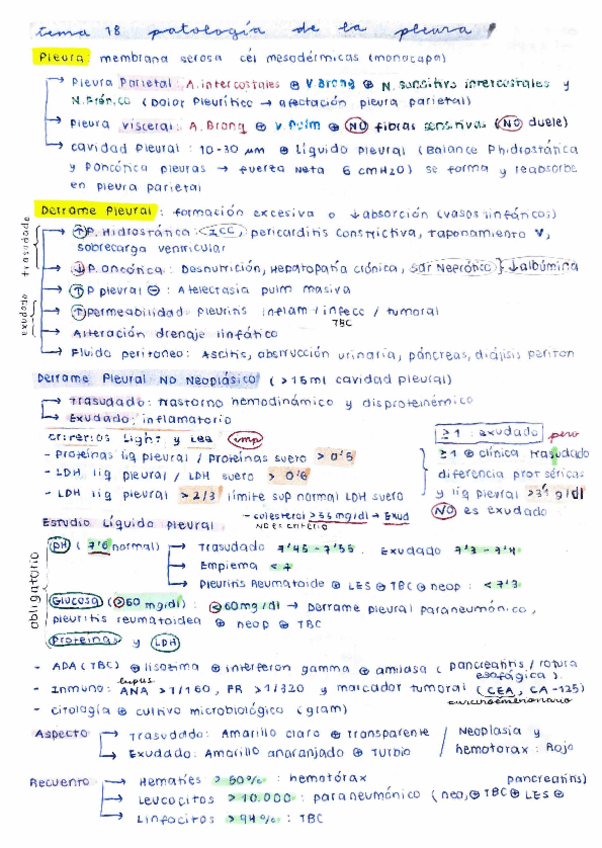 tema 18 patología de la pleura
Pleura: membrana serosa cél mesodérmicas (monocapa)
→ Pleura Parietal: A. intercostales ⊕ V Bronq ⊕ N. sensitivo intercostales y
N. Frénico (Dolor Pleurítico → afectación pleura parietal)
→ Pleura visceral: A. Bronq ⊕ V Pulm ⊕ NO fibras sensitivas (NO duele)
→ cavidad Pleural: 10-30 μm ⊕ líquido pleural (Balance Phidrostánica
y Poncótica pleuras → fuerza neta 6 cmH2O) se forma y reabsorbe
en pleura parietal
Derrame Pleural: formación excesiva o ↓absorción (vasos linfáticos)
trasudado
→ ↑P. Hidrostánica: ICC, pericarditis constrictiva, taponamiento V,
sobrecarga ventricular
→ ↓P. oncótica: Desnutrición, Hepatopatía crónica, Sdr Nefrótico } ↓albúmina
→ ↑P pleural ⊖: Atelectasia pulm masiva
exudado
→ ↑Permeabilidad pleuritis inflam / infecc / tumoral
TBC
→ Alteración drenaje linfático
→ Fluido peritoneo: Ascitis, obstrucción urinaria, páncreas, diálisis periton
Derrame Pleural No Neoplásico (>15ml cavidad pleural)
→ Trasudado: trastorno hemodinámico y disproteinémico
→ Exudado: inflamatorio
criterios Light y Lee imp
≥1: exudado pero
- Proteínas liq pleural / Proteínas suero > 0'5
≥1 ⊕ clínica trasudado
- LDH liq pleural / LDH suero > 0'6
diferencia prot séricas
- LDH liq pleural > 2/3 límite sup normal LDH suero
y liq pleural >3'1 g/dl
NO es exudado
- colesterol >55 mg/dl → Exud
NO es criterio
Estudio Líquido Pleural
obligatorio
pH (7'6 normal) → Trasudado 7'45-7'55. Exudado 7'3-7'4
→ Empiema < 7
→ Pleuritis Reumatoide ⊕ LES ⊕ TBC ⊕ neop: <7'3
Glucosa (>60 mg/dl): <60mg/dl → Derrame pleural paraneumónico,
pleuritis reumatoidea ⊕ neop ⊕ TBC
Proteínas y LDH
- ADA (TBC) ⊕ lisozima ⊕ interferon gamma ⊕ amilasa (pancreatitis / rotura
esofágica)
lupus
- Inmuno: ANA >1/160, FR >1/320 y marcador tumoral (CEA, CA-125)
- citología ⊕ cultivo microbiológico (gram)
Aspecto → Trasudado: Amarillo claro ⊕ transparente / Neoplasia y
→ Exudado: Amarillo anaranjado ⊕ Turbio / hemotorax: Rojo
Recuento → Hematíes > 50%: hemotórax
pancreatitis)
→ Leucocitos > 10.000: paraneumónico (neo, ⊕ TBC ⊕ LES ⊕
→ Linfocitos > 94%: TBC